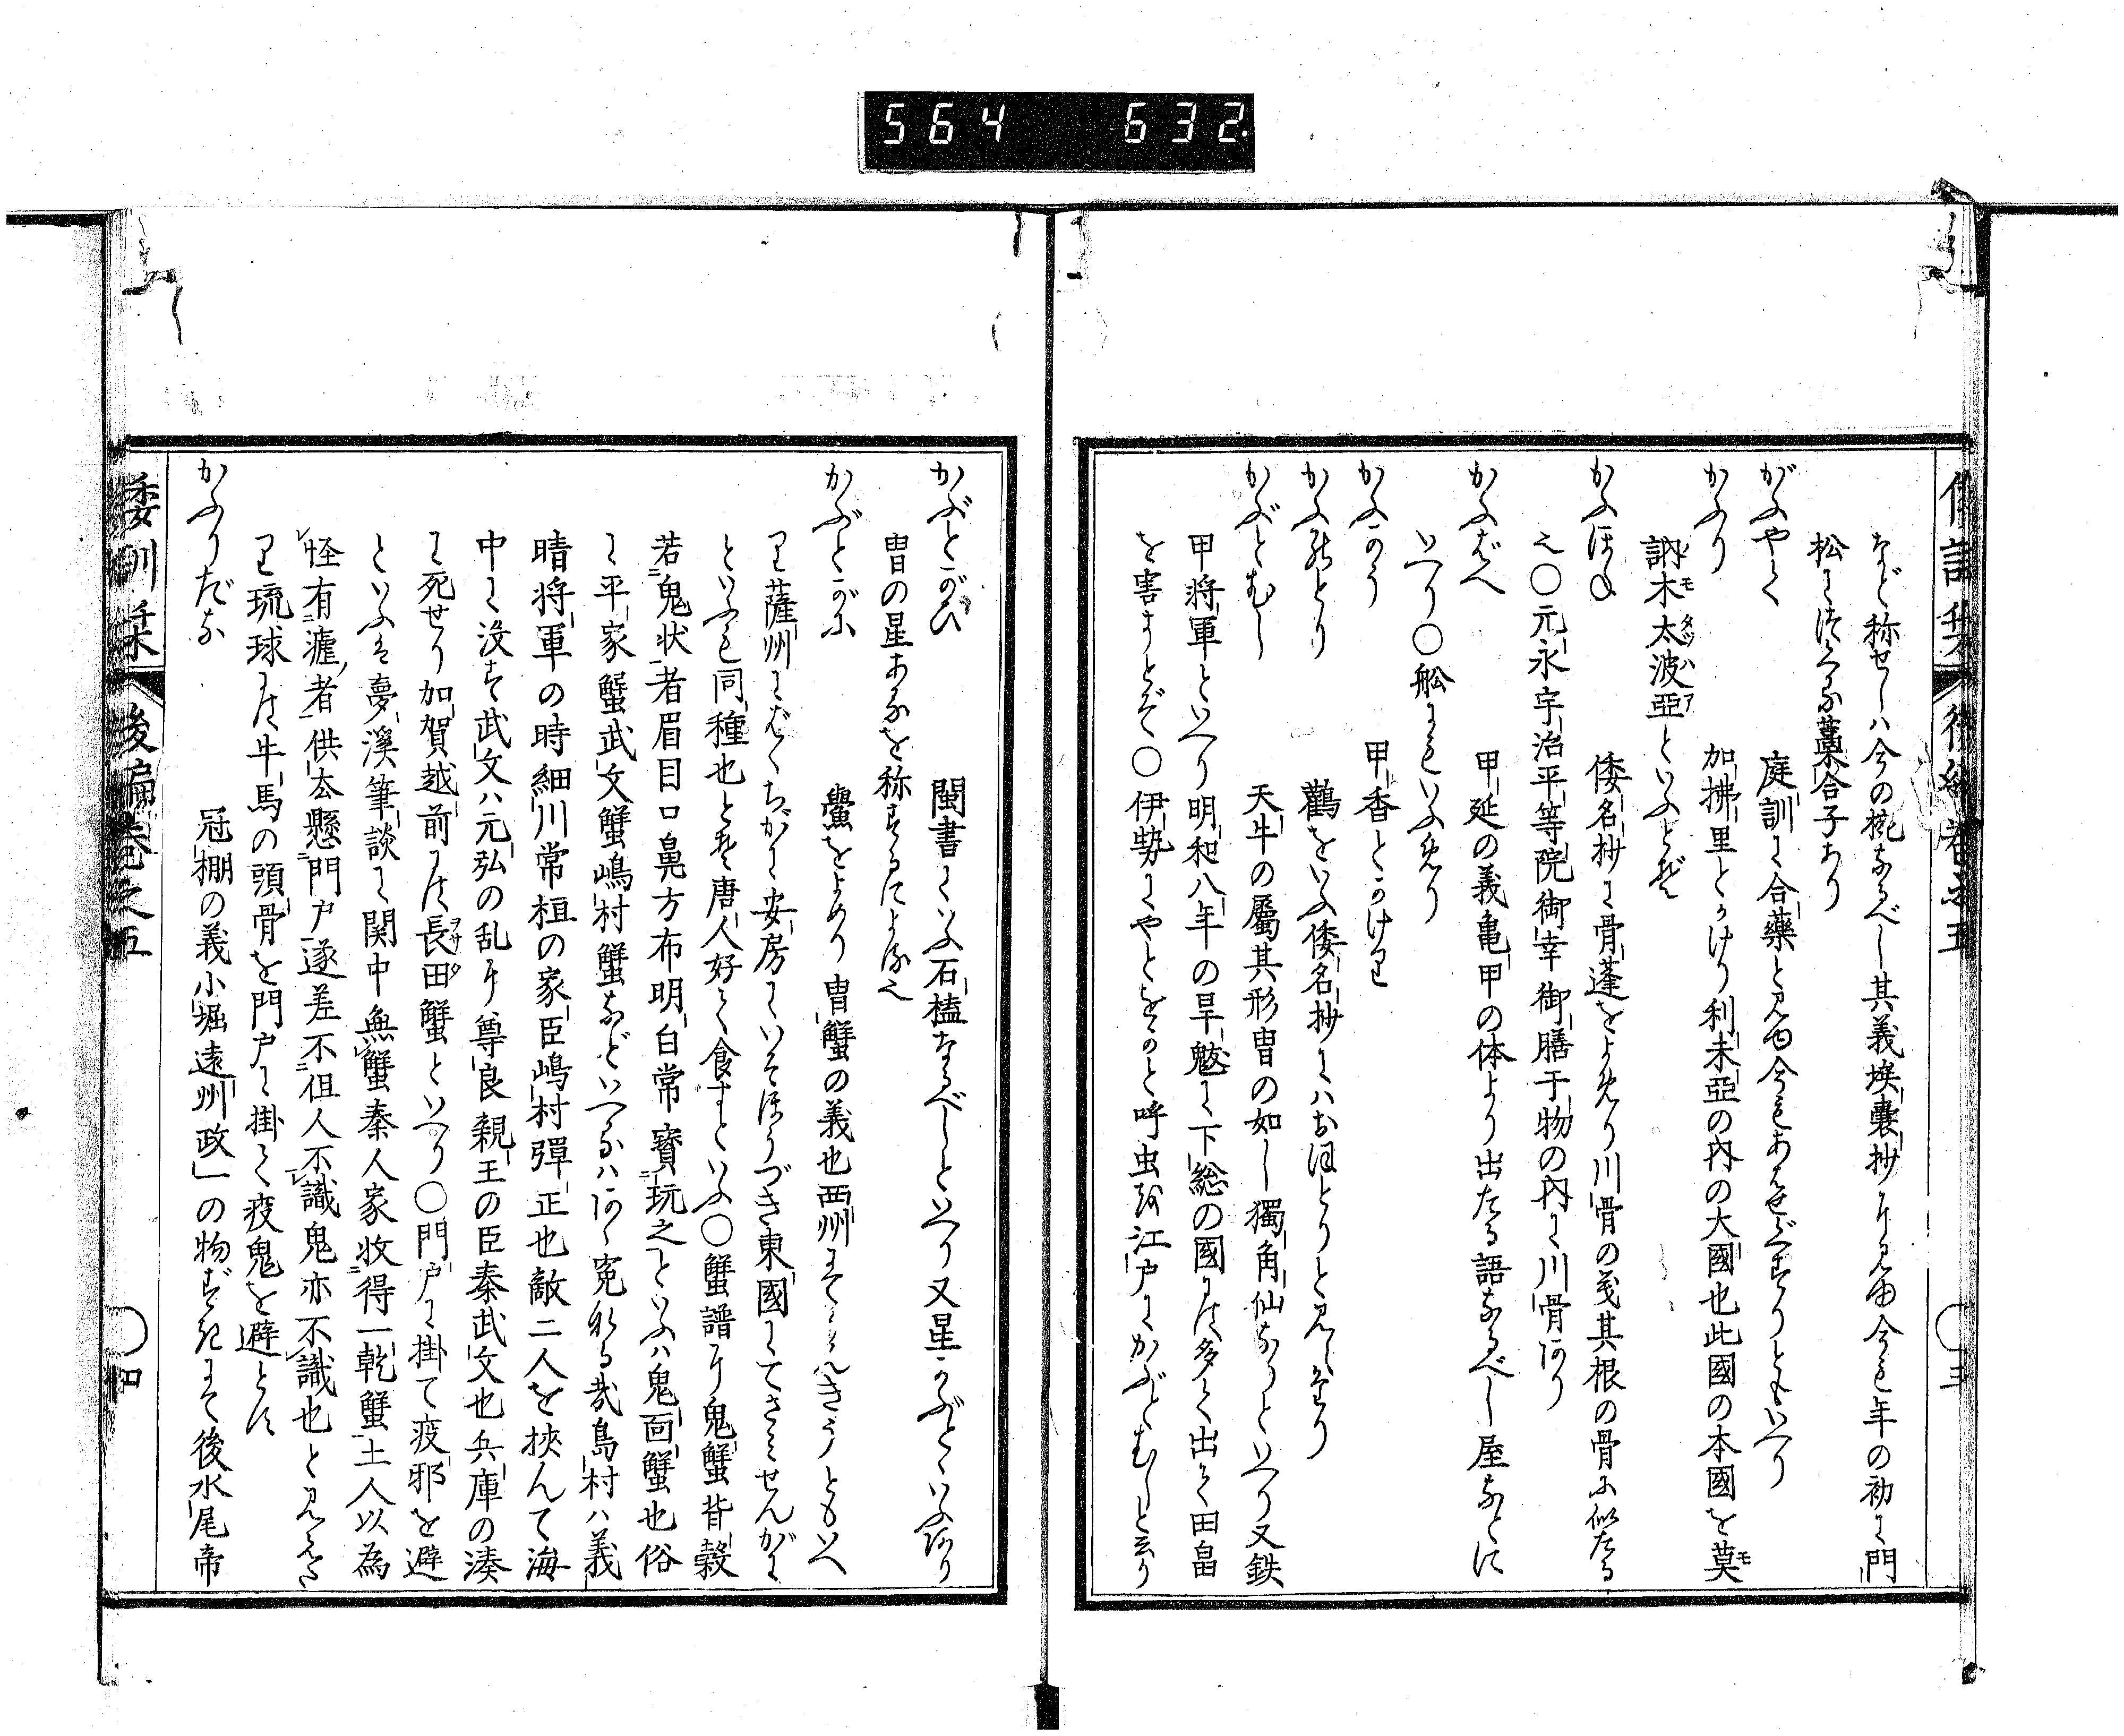 564 632.
など称せしハ今の椀なるべし其義埃嚢抄に見ゆ今も年の初に門
松につくる藁合子あり
がふやく 庭訓に合藥と見ゆ今もあはせぐすりともいへり
かふり 加拂里とかけり利未亞の内の大國也此國の本國を莫
訥木太波亞といふとぞ
かふほね 倭名抄に骨蓬をよめり川骨の義其根の骨に似たる
也〇元永宇治平等院御幸御膳干物の内に川骨あり
かふばへ 甲延の義亀甲の体より出たる語なるべし屋などに
いへり〇舩にもいふめり
かふかう 甲香とかけり
かふのとり 鸛をいふ倭名抄にハおほとりと見えたり
かぶとむし 天牛の屬其形冑の如し獨角仙なりといへり又鉄
甲将軍といへり明和八年の旱魃に下総の國にて多く出て田畠
を害すとぞ〇伊勢にやとをかと呼虫を江戸にかぶとむしと云り
委訓栞 後編巻之五 〇三
かぶとがひ 閩書にいふ石榼なるべしといへり又星かぶとゝいふあり
冑の星あるを称するによる也
かぶとがに 鱟をよめり冑蟹の義也西州にてうんきうともいへ
り薩州にばくちがに安房にいそほうづき東國にてさゝせんがに
といふも同種也とぞ唐人好て食すといふ〇蟹譜に鬼蟹背殻
若鬼状者眉目口鼻方布明白常寳玩之といふハ鬼面蟹也俗
に平家蟹武文蟹嶋村蟹などいへるハあゝ寃なる哉島村ハ義
晴将軍の時細川常桓の家臣嶋村彈正也敵二人を挾んて海
中に没す武文ハ元弘の乱に尊良親王の臣秦武文也兵庫の湊
に死せり加賀越前にて長田蟹といへり〇門戸に掛て疫邪を避
といふも夢溪筆談に関中無蟹秦人家收得一乾蟹土人以為
怪有瘧者供去懸門戸遂差不但人不識鬼亦不識也と見えた
り琉球にて牛馬の頭骨を門戸に掛て疫鬼を避とぞ
かふりだな 冠棚の義小堀遠州政一の物ずきにて後水尾帝
委訓栞 後編巻之五 〇四